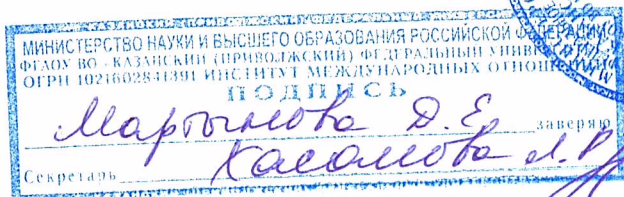 МИНИСТЕРСТВО НАУКИ И ВЫСШЕГО ОБРАЗОВАНИЯ РОССИЙСКОЙ ФЕДЕРАЦИИ
ФГАОУ ВО «КАЗАНСКИЙ (ПРИВОЛЖСКИЙ) ФЕДЕРАЛЬНЫЙ
ОГРН 1021602841391 ИНСТИТУТ МЕЖДУНАРОДНЫХ
ПОДПИСЬ
Мартынова Д.Е. заверяю
Секретарь Хасанова